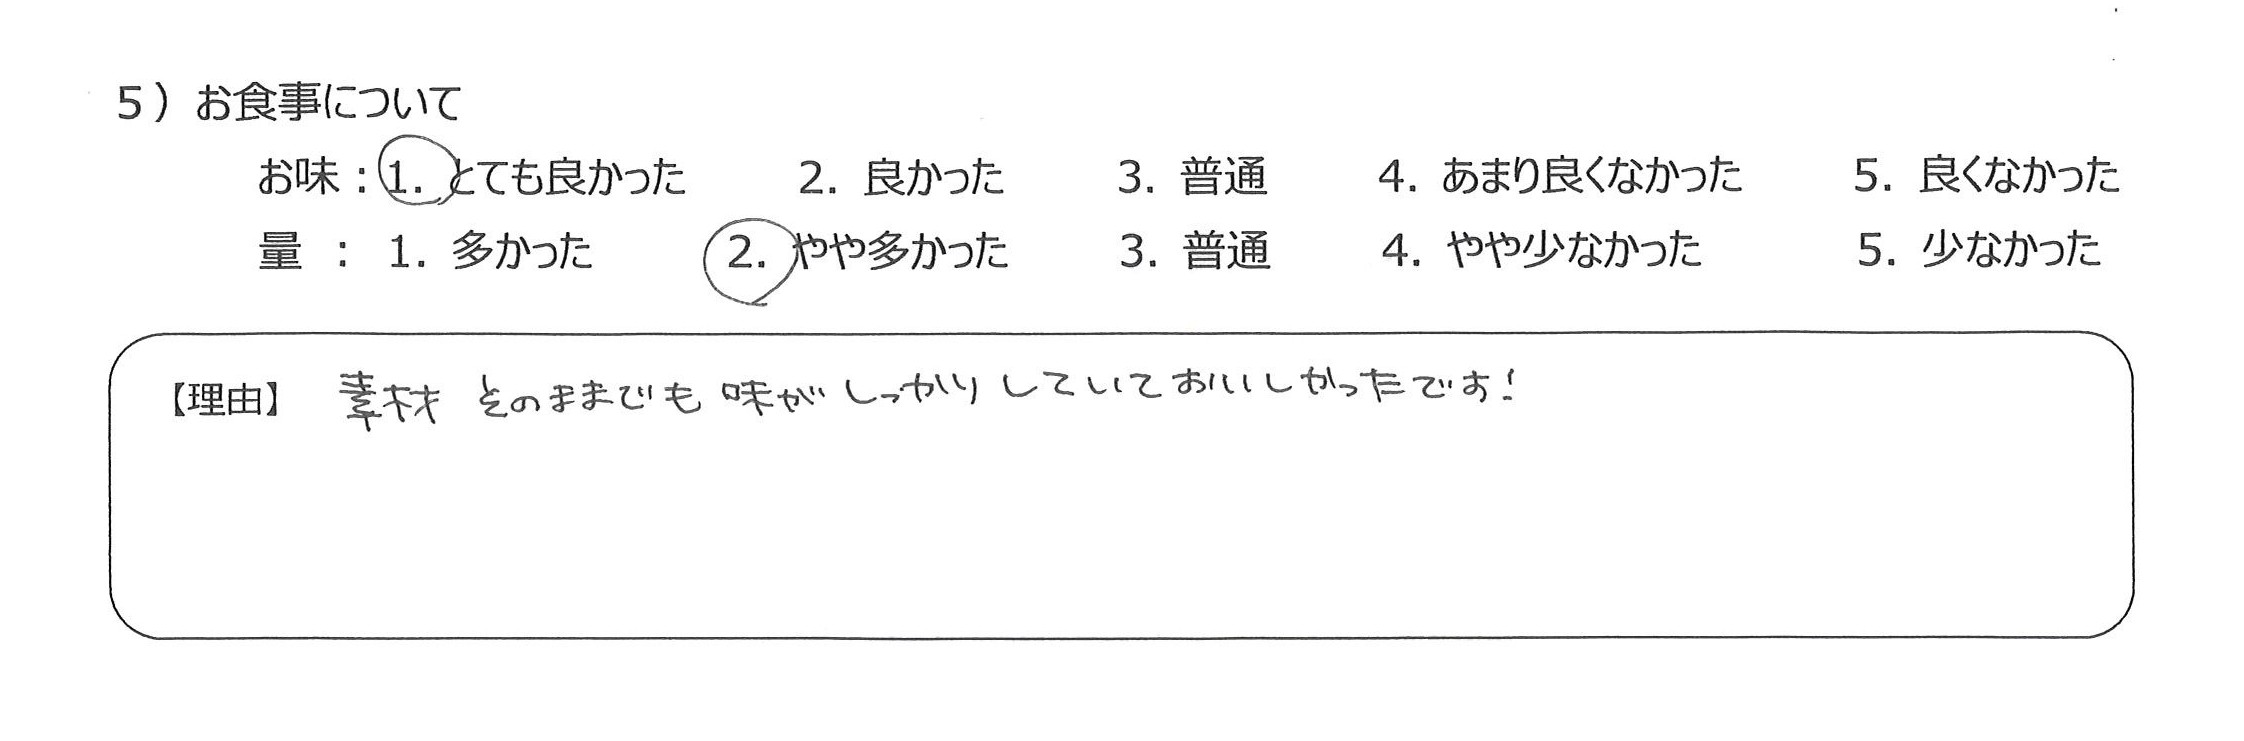 5）お食事について
お味：1. とても良かった 2. 良かった 3. 普通 4. あまり良くなかった 5. 良くなかった
量 ： 1. 多かった 2. やや多かった 3. 普通 4. やや少なかった 5. 少なかった
【理由】 素材そのままでも味がしっかりしていておいしかったです!